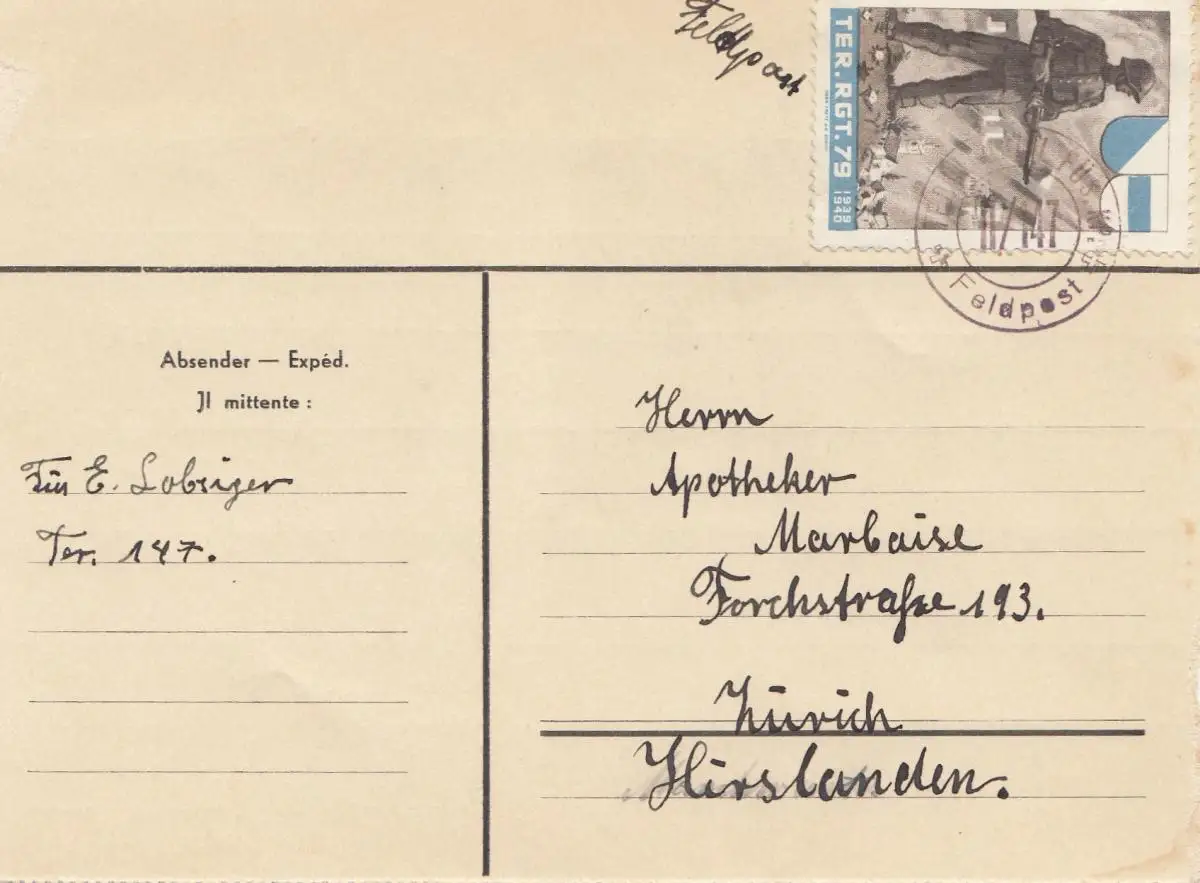 Feldpost
TER. RGT. 79 1939 1940
II/147
Feldpost
Absender — Expéd.
Il mittente :
Füs E. Lobsiger
Ter. 147.
Herrn
Apotheker
Marbaise
Forchstraße 193.
Zürich
Hirslanden.